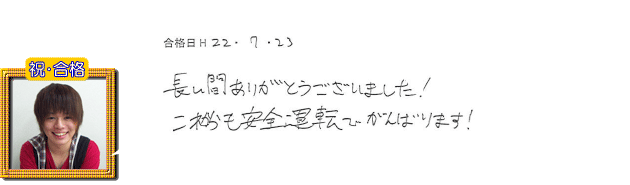 合格日H22・7・23
祝・合格
長い間ありがとうございました!
これからも安全運転でがんばります!